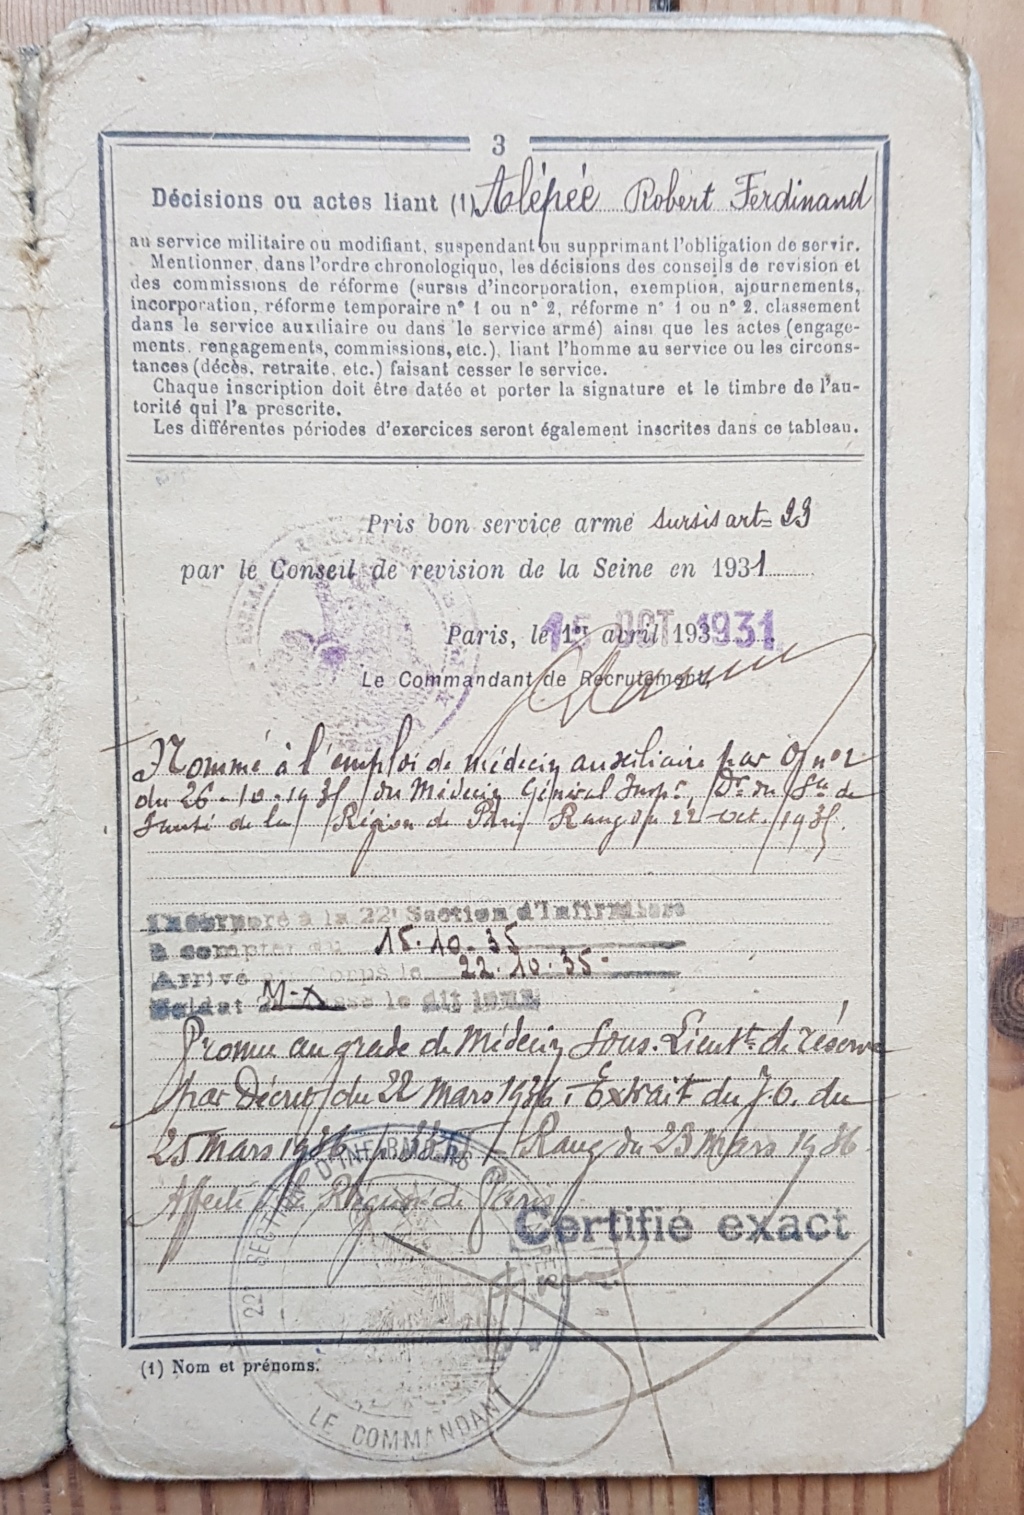 3
Décisions ou actes liant (1) Alépée Robert Ferdinand
au service militaire ou modifiant, suspendant ou supprimant l'obligation de servir.
Mentionner, dans l'ordre chronologique, les décisions des conseils de revision et
des commissions de réforme (sursis d'incorporation, exemption, ajournements,
incorporation, réforme temporaire n° 1 ou n° 2, réforme n° 1 ou n° 2, classement
dans le service auxiliaire ou dans le service armé) ainsi que les actes (engage-
ments, rengagements, commissions, etc.), liant l'homme au service ou les circons-
tances (décès, retraite, etc.) faisant cesser le service.
Chaque inscription doit être datée et porter la signature et le timbre de l'au-
torité qui l'a prescrite.
Les différentes périodes d'exercices seront également inscrites dans ce tableau.
Pris bon service armé sursis art= 23
par le Conseil de revision de la Seine en 1931
Paris, le 1er avril 193 15 OCT 1931
Le Commandant de Recrutement,
Nommé à l'emploi de médecin auxiliaire par O/ n° 2
du 26-10-1935 du Médecin Général Insp^r, D^r du S^ce de
Santé de la Région de Paris Rang du 22 oct. 1935.
Incorporé à la 22e Section d'Infirmiers
à compter du 15.10-35
Arrivé au Corps le 22.10.35
Soldat de classe le dit jour
Promu au grade de Médecin Sous-Lieu^t de réserve
par Décret du 22 Mars 1936. Extrait du J.O. du
25 Mars 1936 Rang du 23 Mars 1936
Affecté Région de Paris
Certifié exact
22e SECTION D'INFIRMIERS
LE COMMANDANT
(1) Nom et prénoms.